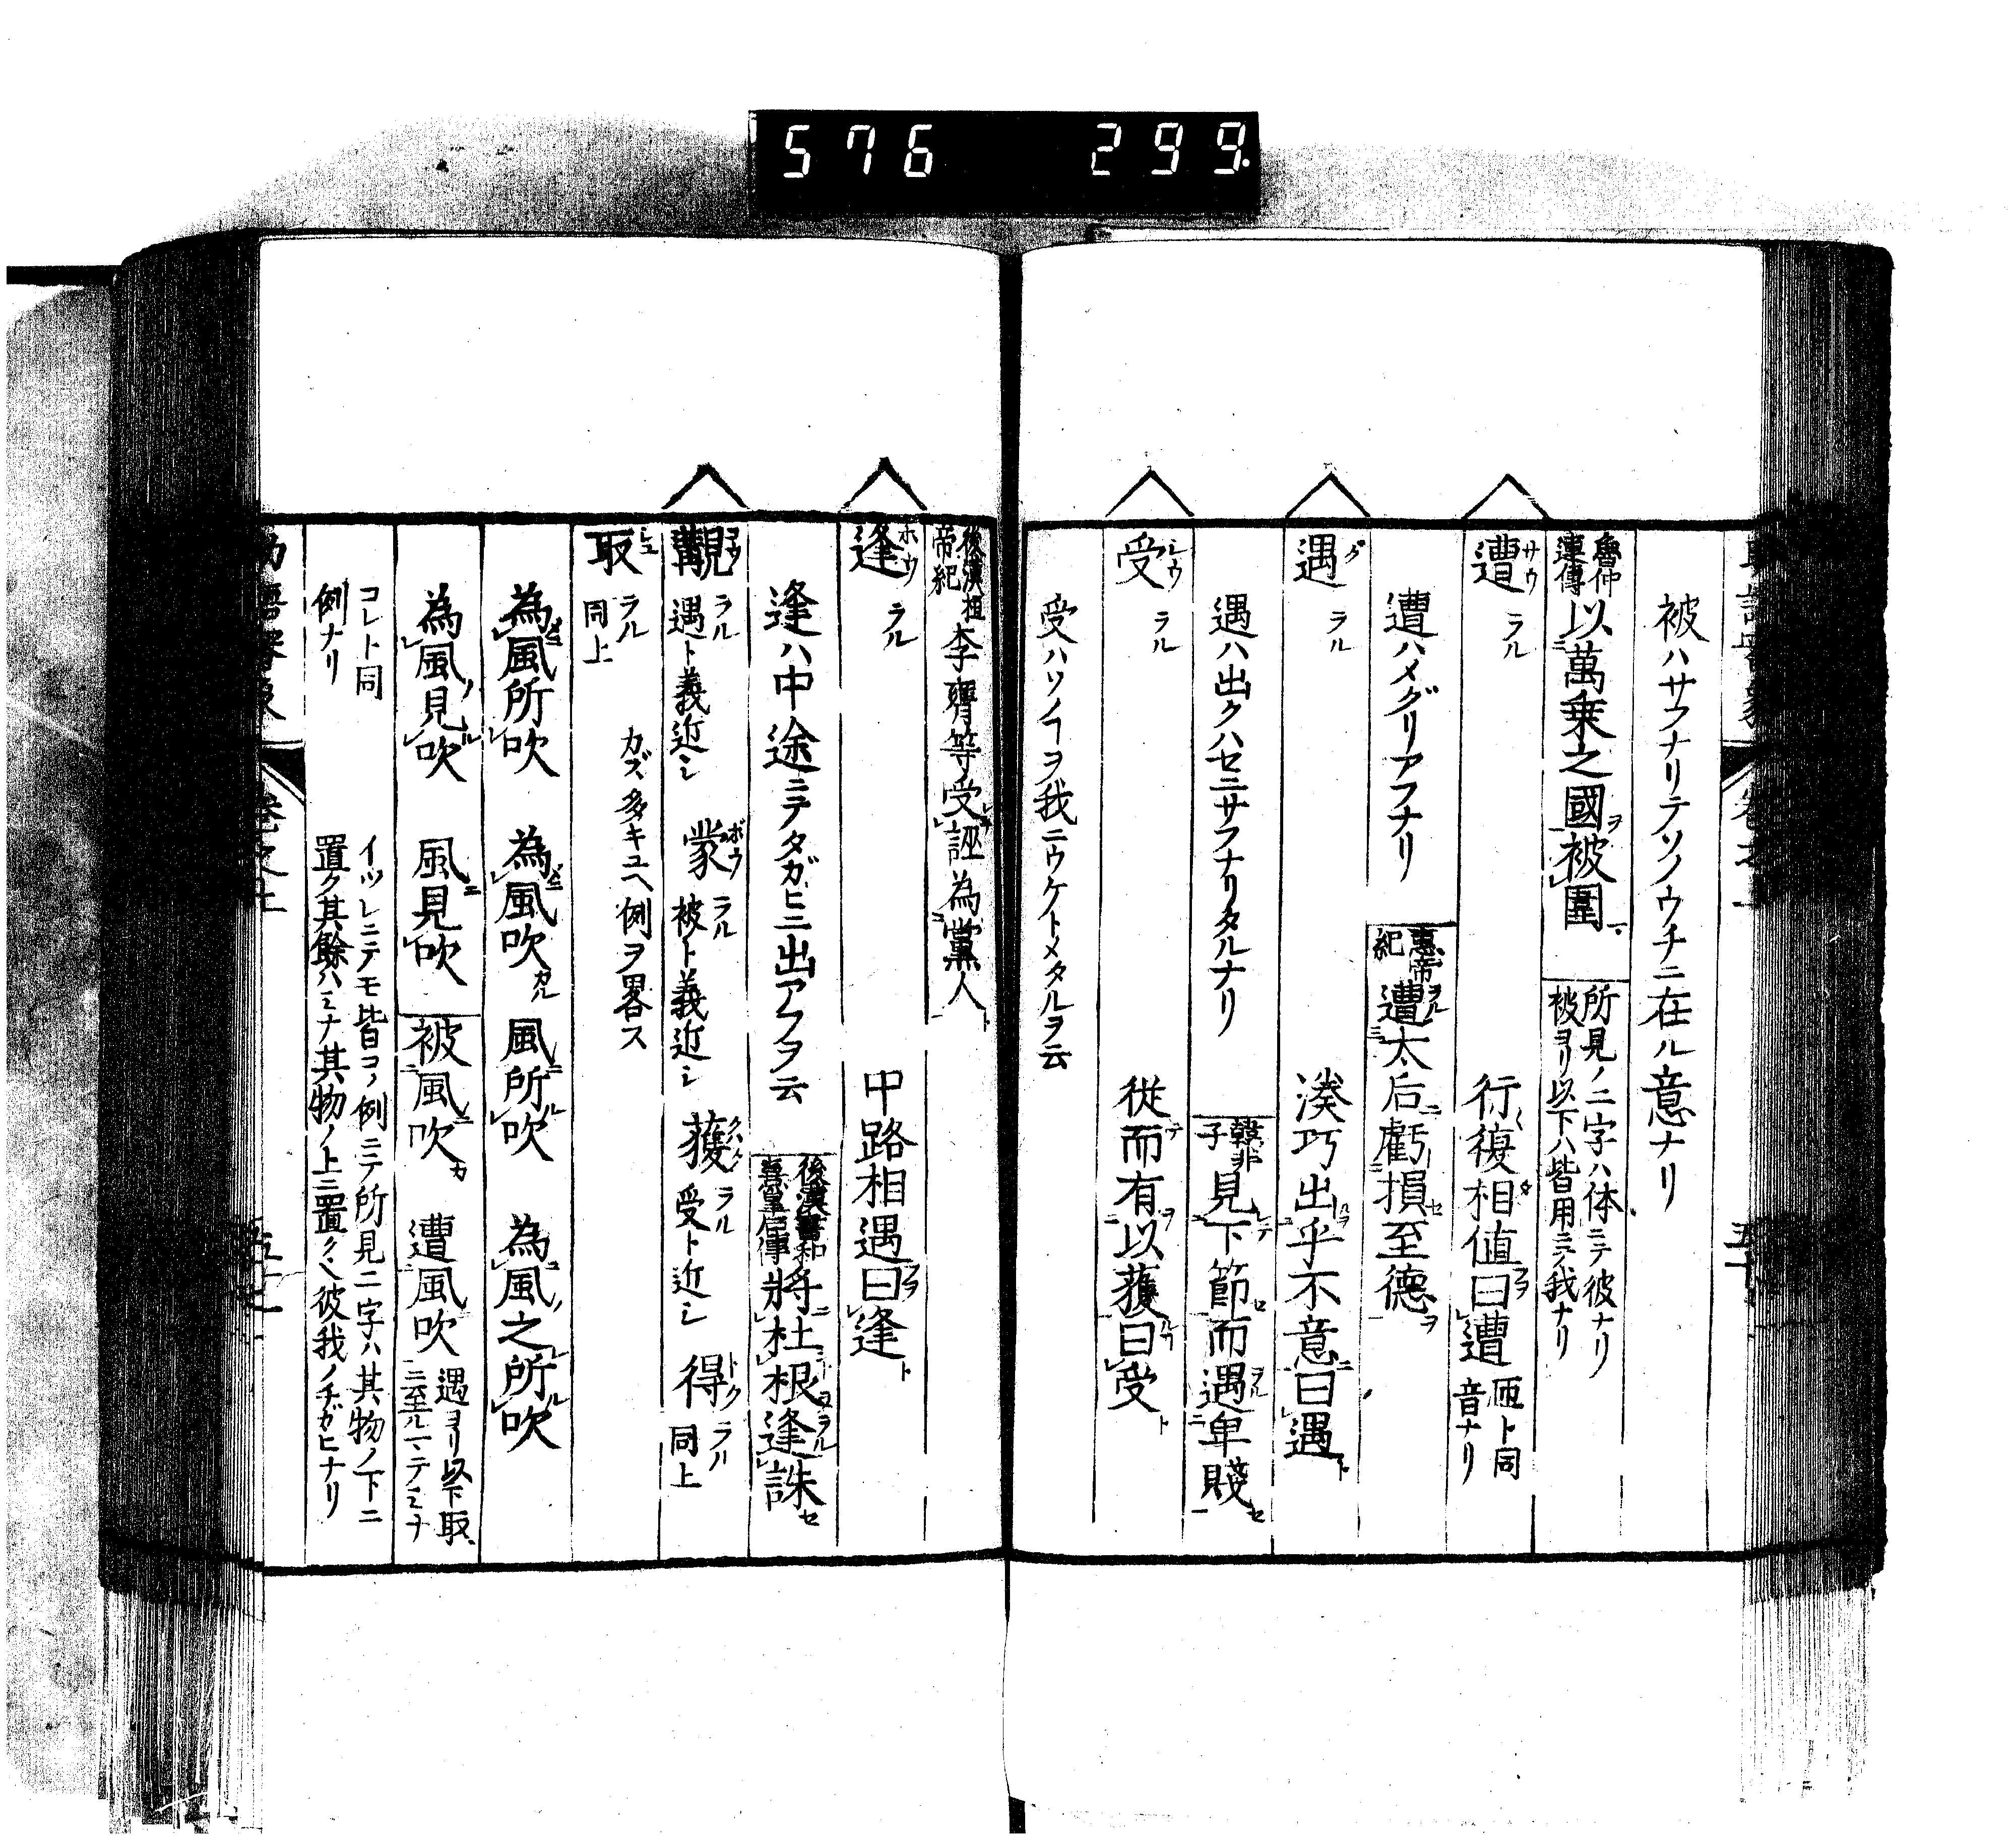 576 299.
被ハサフナリテソノウチニ在ル意ナリ
魯仲連傳 以萬乗之國被圍 所見ノ二字ハ体ニテ彼ナリ
被ヨリ以下ハ皆用ニテ我ナリ
遭 サウ ラル 行復相値曰遭 匝ト同
音ナリ
遭ハメグリアフナリ 惠帝紀 遭太后虧損至德
遇 グ ラル 湊巧出乎不意曰遇
遇ハ出クハセニサフナリタルナリ 韓非子 見下節而遇卑賤
受 シウ ラル 從而有以獲曰受
受ハソノヿヲ我ニウケトメタルヲ云
後漢 帝紀 李膺等受誣為黨人
逢 ホウ ラル 中路相遇曰逢
逢ハ中途ニテタガヒニ出アフヲ云 將杜根逢誅
覯 コウ ラル 遇ト義近シ 蒙 ボウ ラル 被ト義近シ 獲 ラル 受ト近シ 得 トク ラル 同上
取 シユ ラル 同上 カズ多キユヘ例ヲ畧ス
為風所吹 為風吹 風所吹 為風之所吹
為風見吹 風見吹 被風吹 遭風吹 遇ヨリ以下取
ニ至ルマテミナ
コレト同
例ナリ
イツレニテモ皆コノ例ニテ所見二字ハ其物ノ下ニ
置ク其餘ハミナ其物ノ上ニ置ク彼我ノチガヒナリ